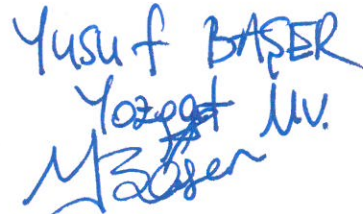 Yusuf BAŞER
Yozgat Mv.